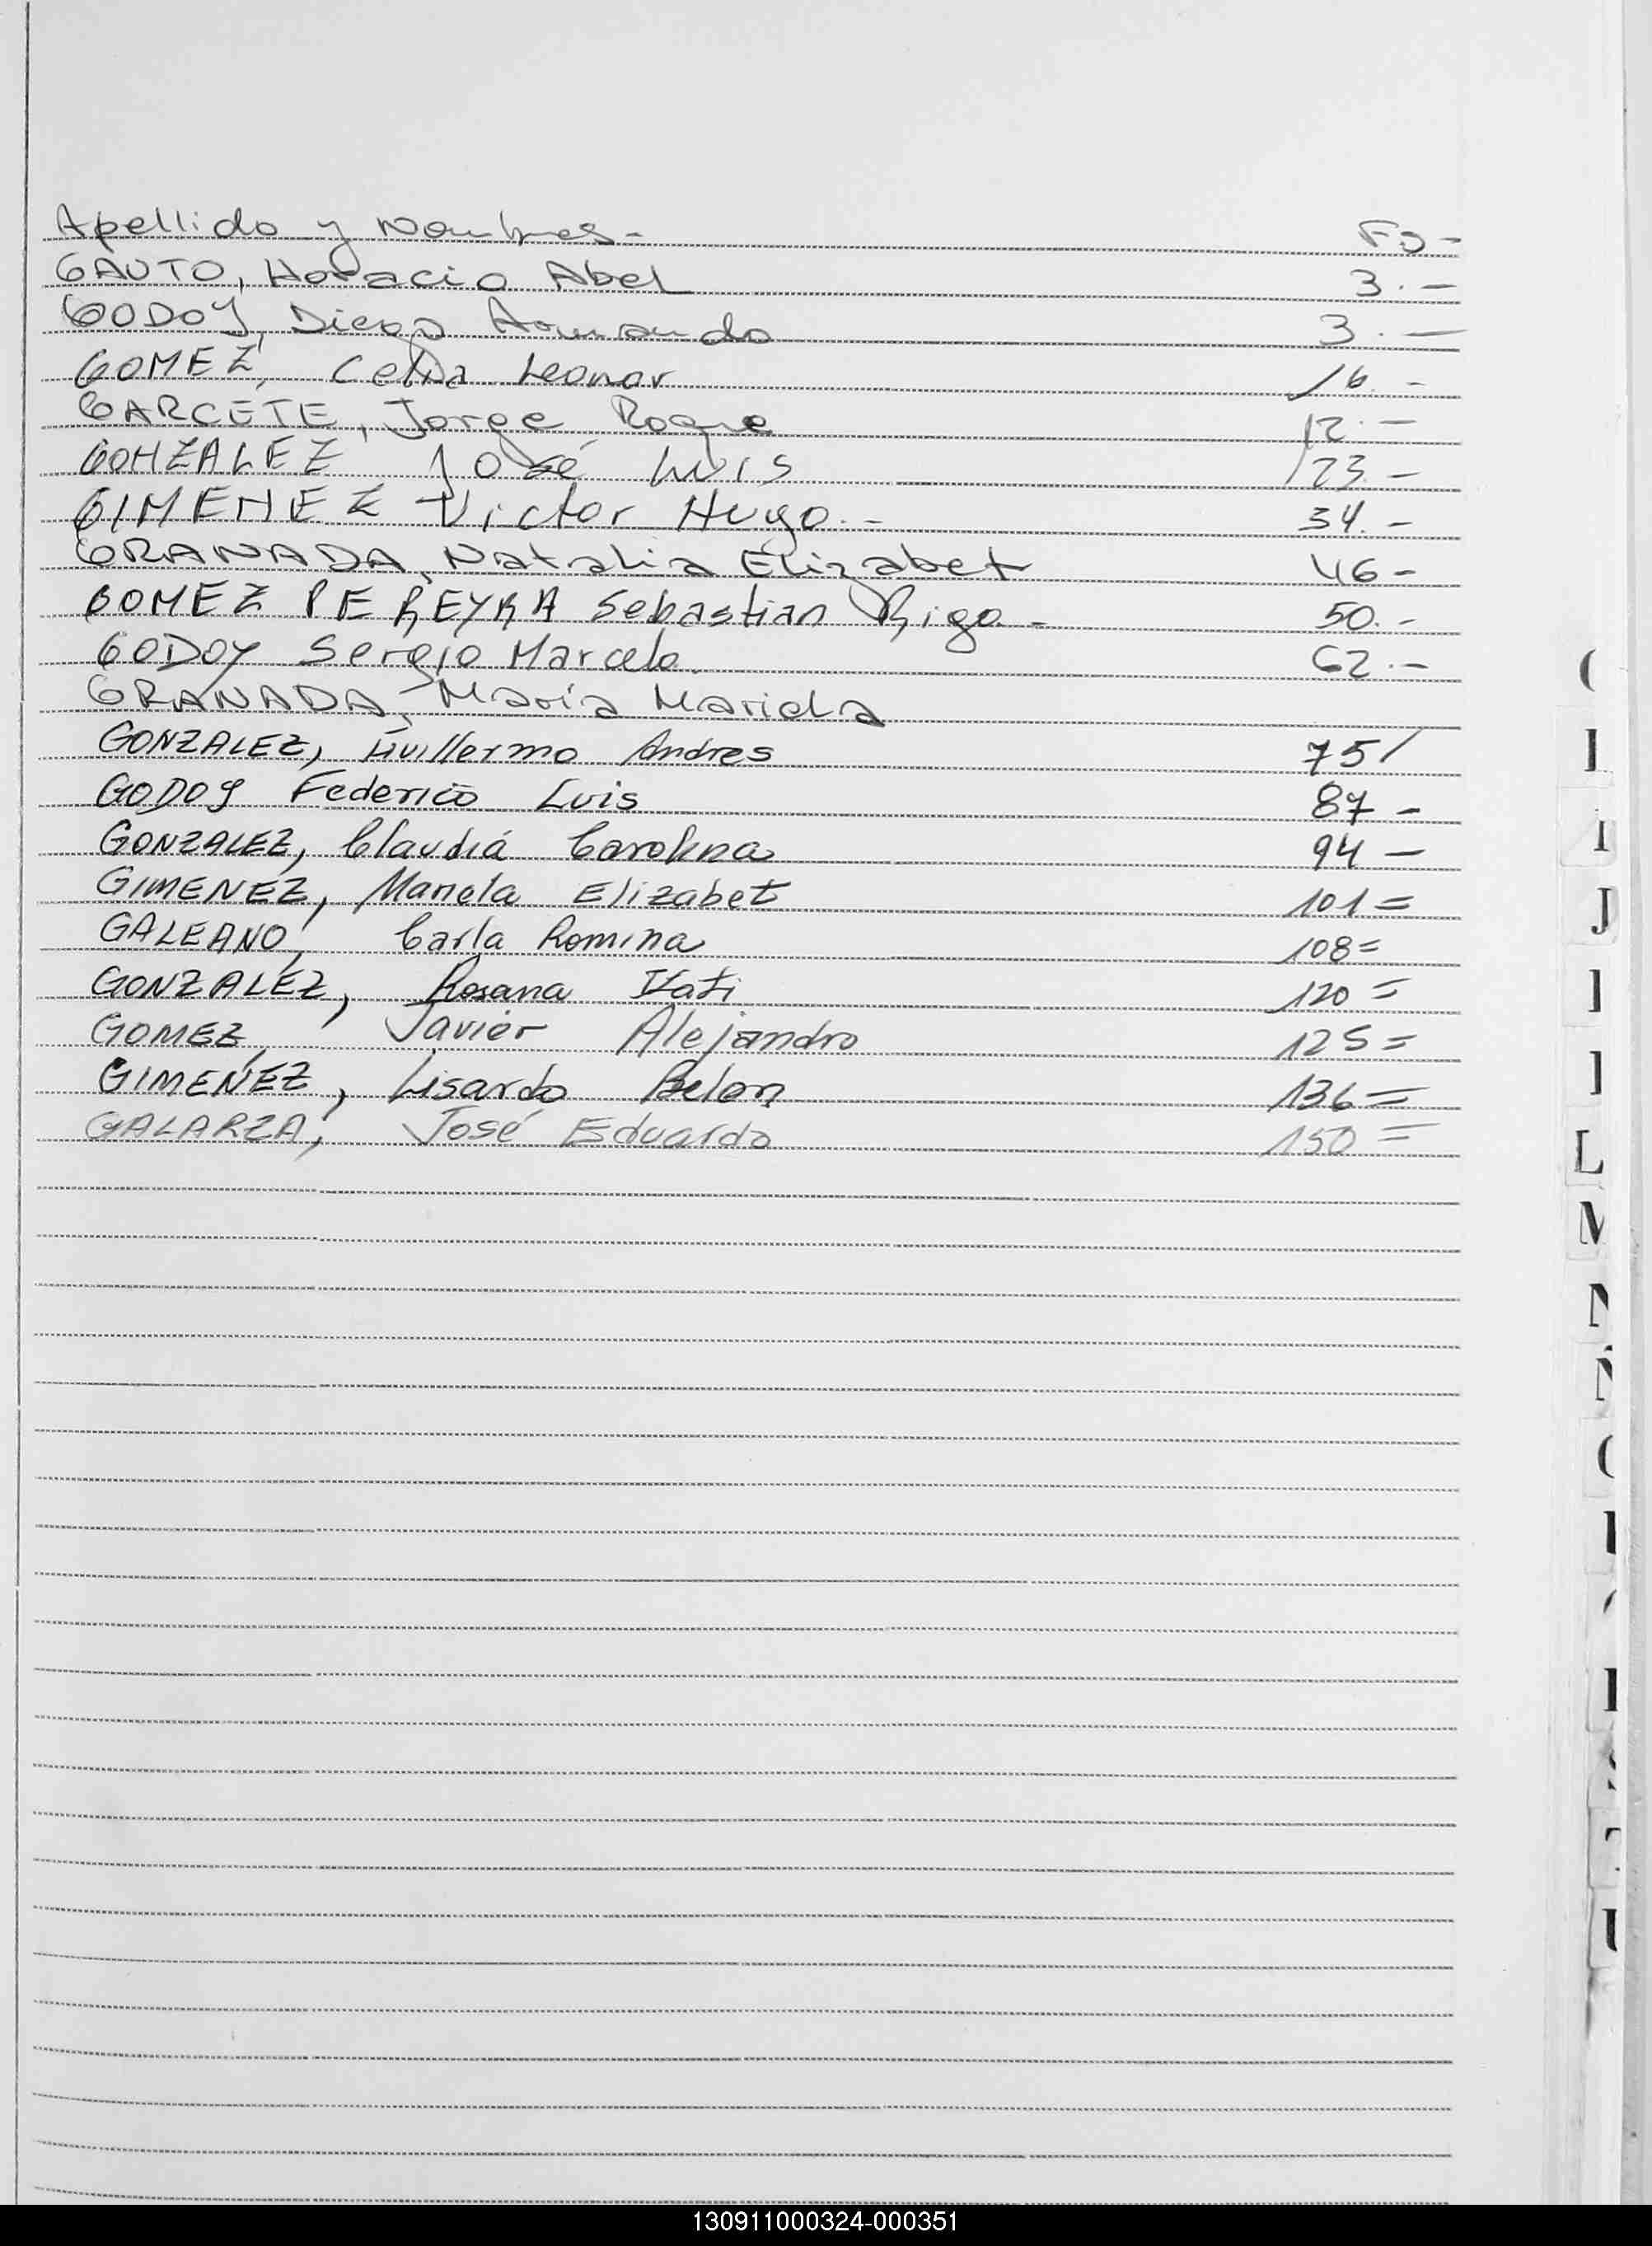 Apellido y Nombres- Fo-
GAUTO, Horacio Abel 3.-
GODOY, Diego Armando 3.-
GOMEZ, Celia Leonor 16.-
GARCETE, Jorge Roque 12.-
GONZALEZ José Luis 23.-
GIMENEZ Victor Hugo.- 34.-
GRANADA, Natalia Elizabet 46-
GOMEZ PEREYRA Sebastian Rigo- 50.-
GODOY Sergio Marcelo. 62.-
GRANADA, María Mariela
GONZALEZ, Guillermo Andres 75/
GODOY Federico Luis 87-
GONZALEZ, Claudia Carolina 94-
GIMENEZ, Mariela Elizabet 101=
GALEANO, Carla Romina 108=
GONZALEZ, Rosana Itati 120=
GOMEZ, Javier Alejandro 125=
GIMENEZ, Lisardo Belen 136=
GALARZA, José Eduardo 150=
I
J
L
M
N
Ñ
130911000324-000351